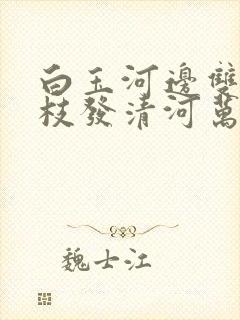 白玉河邊雙
枝發清河萬
魏士江